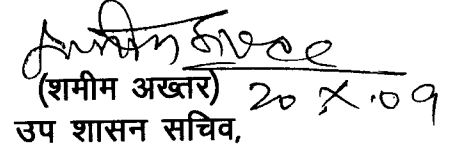 (शमीम अख्तर) 20.X.09
उप शासन सचिव,